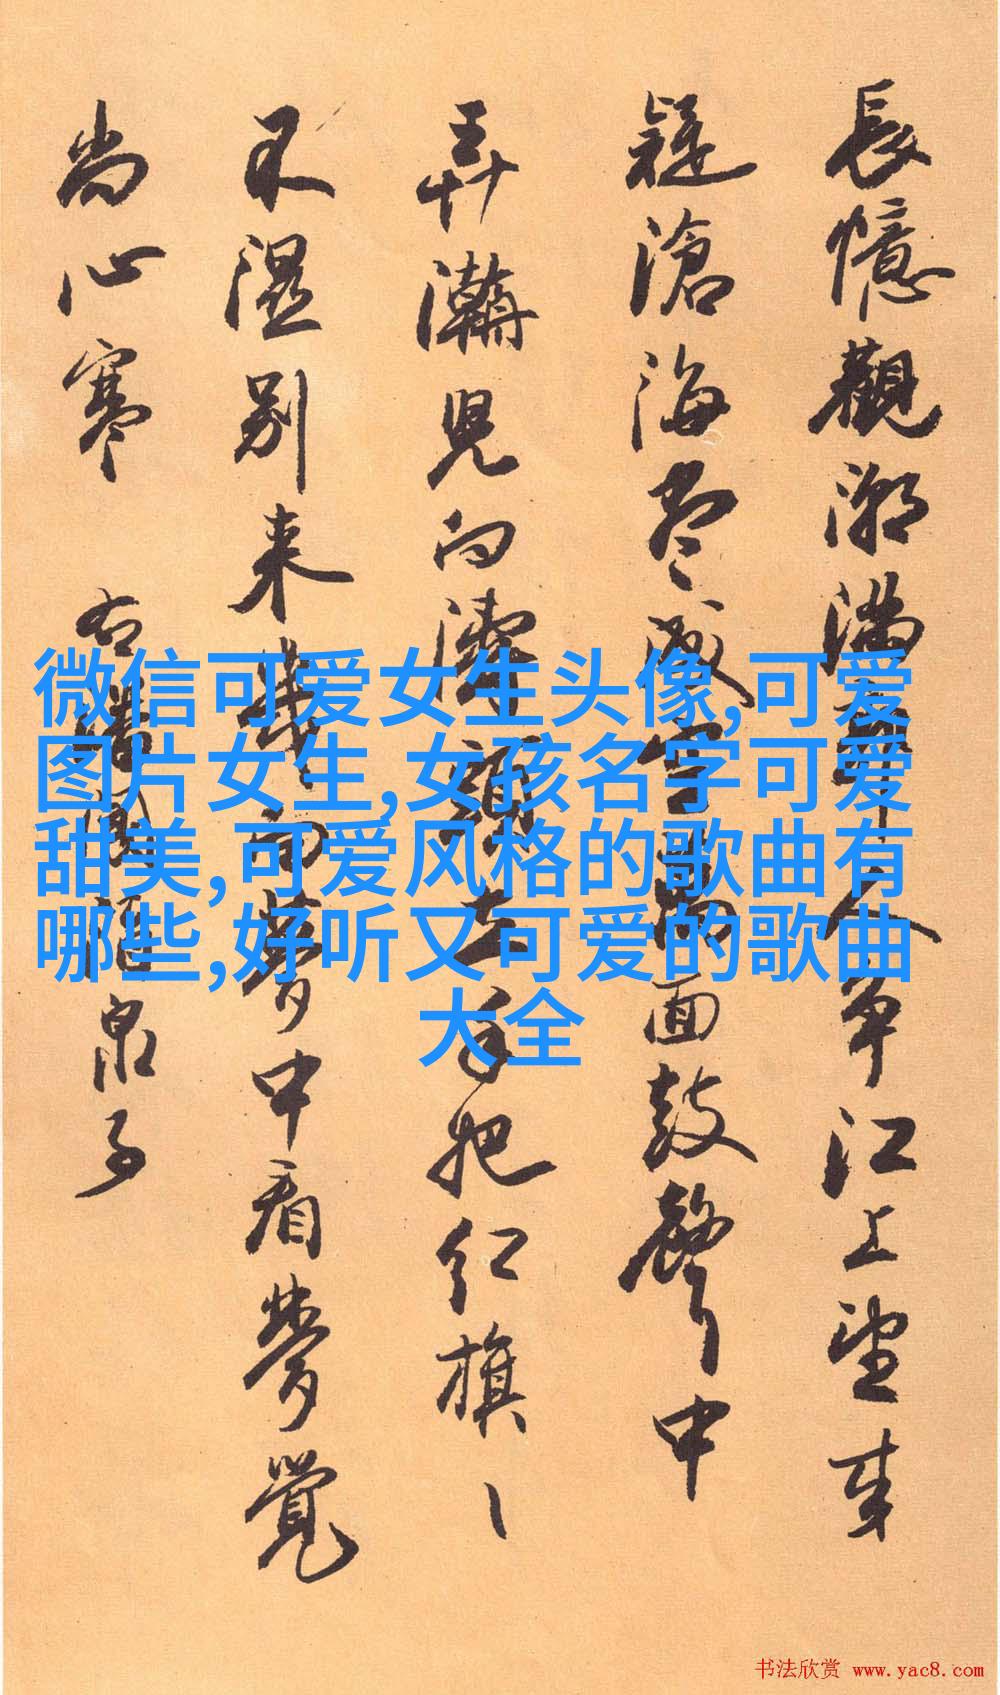 長憶觀潮滿郭人爭江上望來
疑滄海盡成空萬面鼓聲中
弄潮兒向濤頭立手把红旗〻
不濕别来幾向夢中看夢覺
尚心寒 右潘閬酒泉子
微信可爱女生头像,可爱
图片女生,女孩名字可爱
甜美,可爱风格的歌曲有
哪些,好听又可爱的歌曲
大全
书法欣赏 www.yac8.com